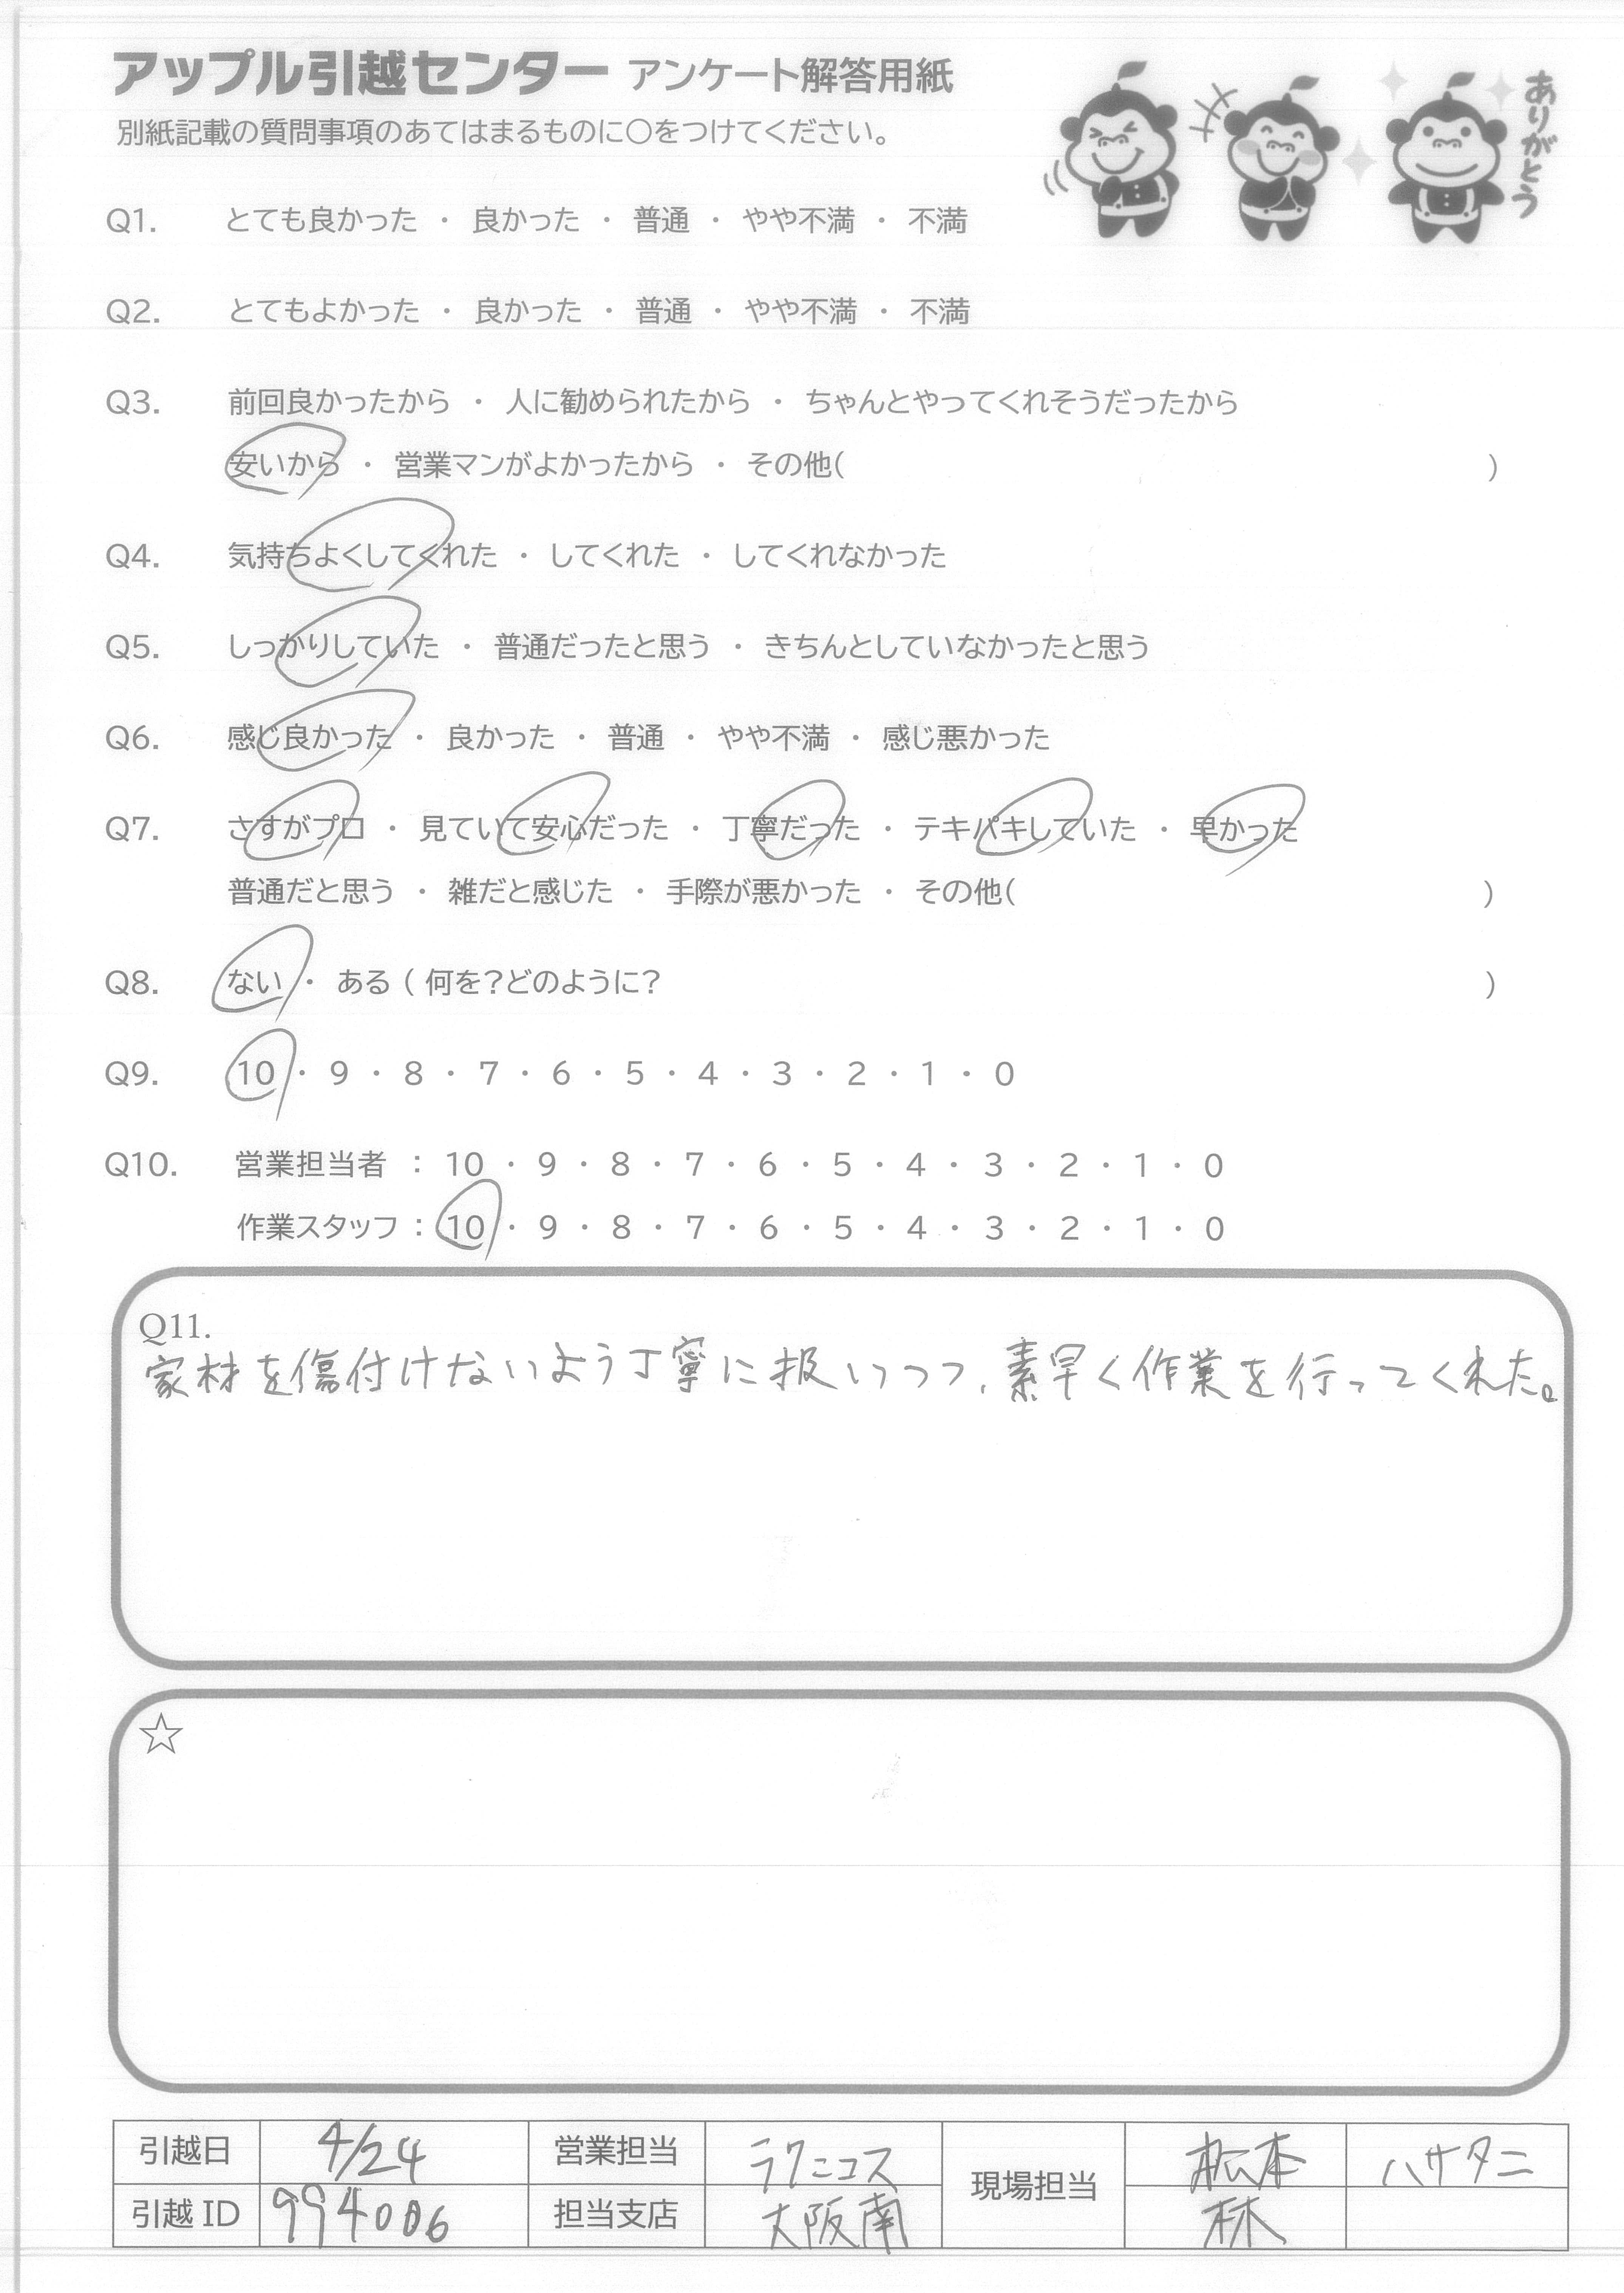 アップル引越センター アンケート解答用紙
別紙記載の質問事項のあてはまるものに○をつけてください。
ありがとう
Q1. とても良かった ・ 良かった ・ 普通 ・ やや不満 ・ 不満
Q2. とてもよかった ・ 良かった ・ 普通 ・ やや不満 ・ 不満
Q3. 前回良かったから ・ 人に勧められたから ・ ちゃんとやってくれそうだったから
安いから ・ 営業マンがよかったから ・ その他( )
Q4. 気持ちよくしてくれた ・ してくれた ・ してくれなかった
Q5. しっかりしていた ・ 普通だったと思う ・ きちんとしていなかったと思う
Q6. 感じ良かった ・ 良かった ・ 普通 ・ やや不満 ・ 感じ悪かった
Q7. さすがプロ ・ 見ていて安心だった ・ 丁寧だった ・ テキパキしていた ・ 早かった
普通だと思う ・ 雑だと感じた ・ 手際が悪かった ・ その他( )
Q8. ない ・ ある ( 何を?どのように? )
Q9. 10 ・ 9 ・ 8 ・ 7 ・ 6 ・ 5 ・ 4 ・ 3 ・ 2 ・ 1 ・ 0
Q10. 営業担当者 : 10 ・ 9 ・ 8 ・ 7 ・ 6 ・ 5 ・ 4 ・ 3 ・ 2 ・ 1 ・ 0
作業スタッフ : 10 ・ 9 ・ 8 ・ 7 ・ 6 ・ 5 ・ 4 ・ 3 ・ 2 ・ 1 ・ 0
Q11.
家材を傷付けないよう丁寧に扱いつつ、素早く作業を行ってくれた。
☆
引越日 4/24 営業担当 ラクニコス 現場担当 松本 ハサタニ
引越ID 994006 担当支店 大阪南 林